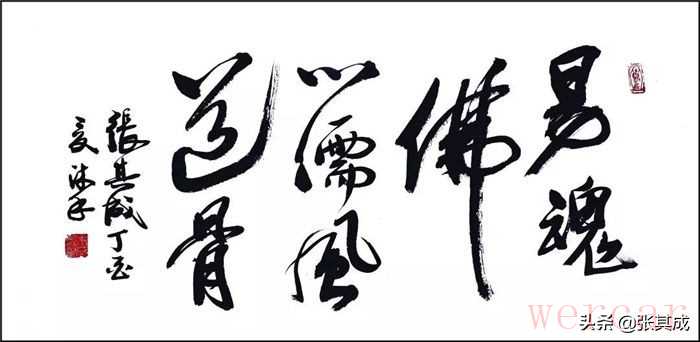 易魂
佛
心儒風
道骨
張其成丁酉
夏沐手
wercar
头条 @张其成